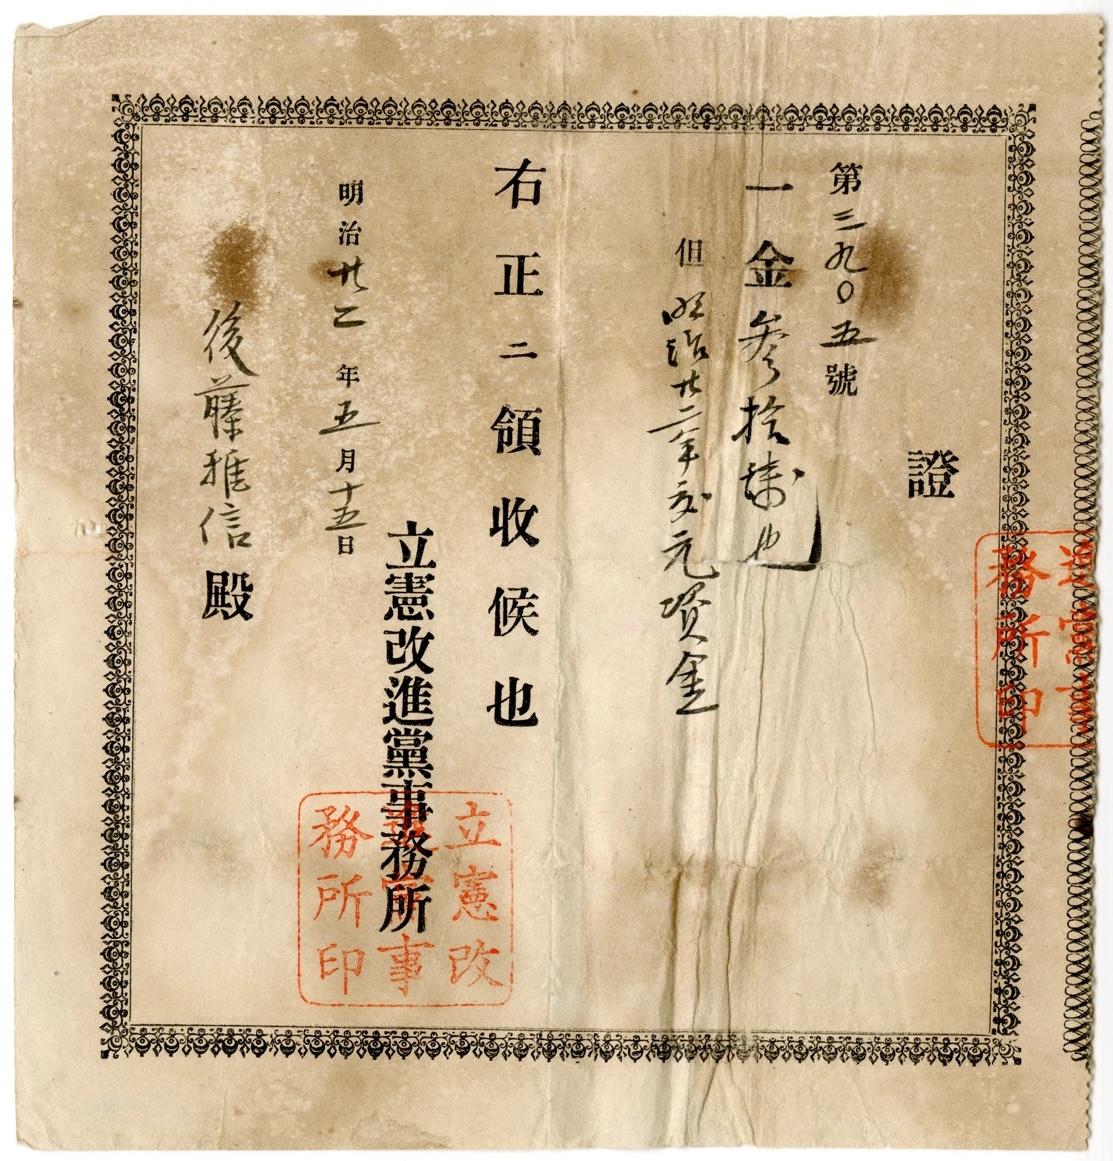 證
第三九〇五號
一金参拾銭也
但明治廿二年度元資金
右正ニ領收候也
明治廿二年五月十五日
立憲改進黨事務所
後藤雅信殿
立憲改
進黨事
務所印
務所印